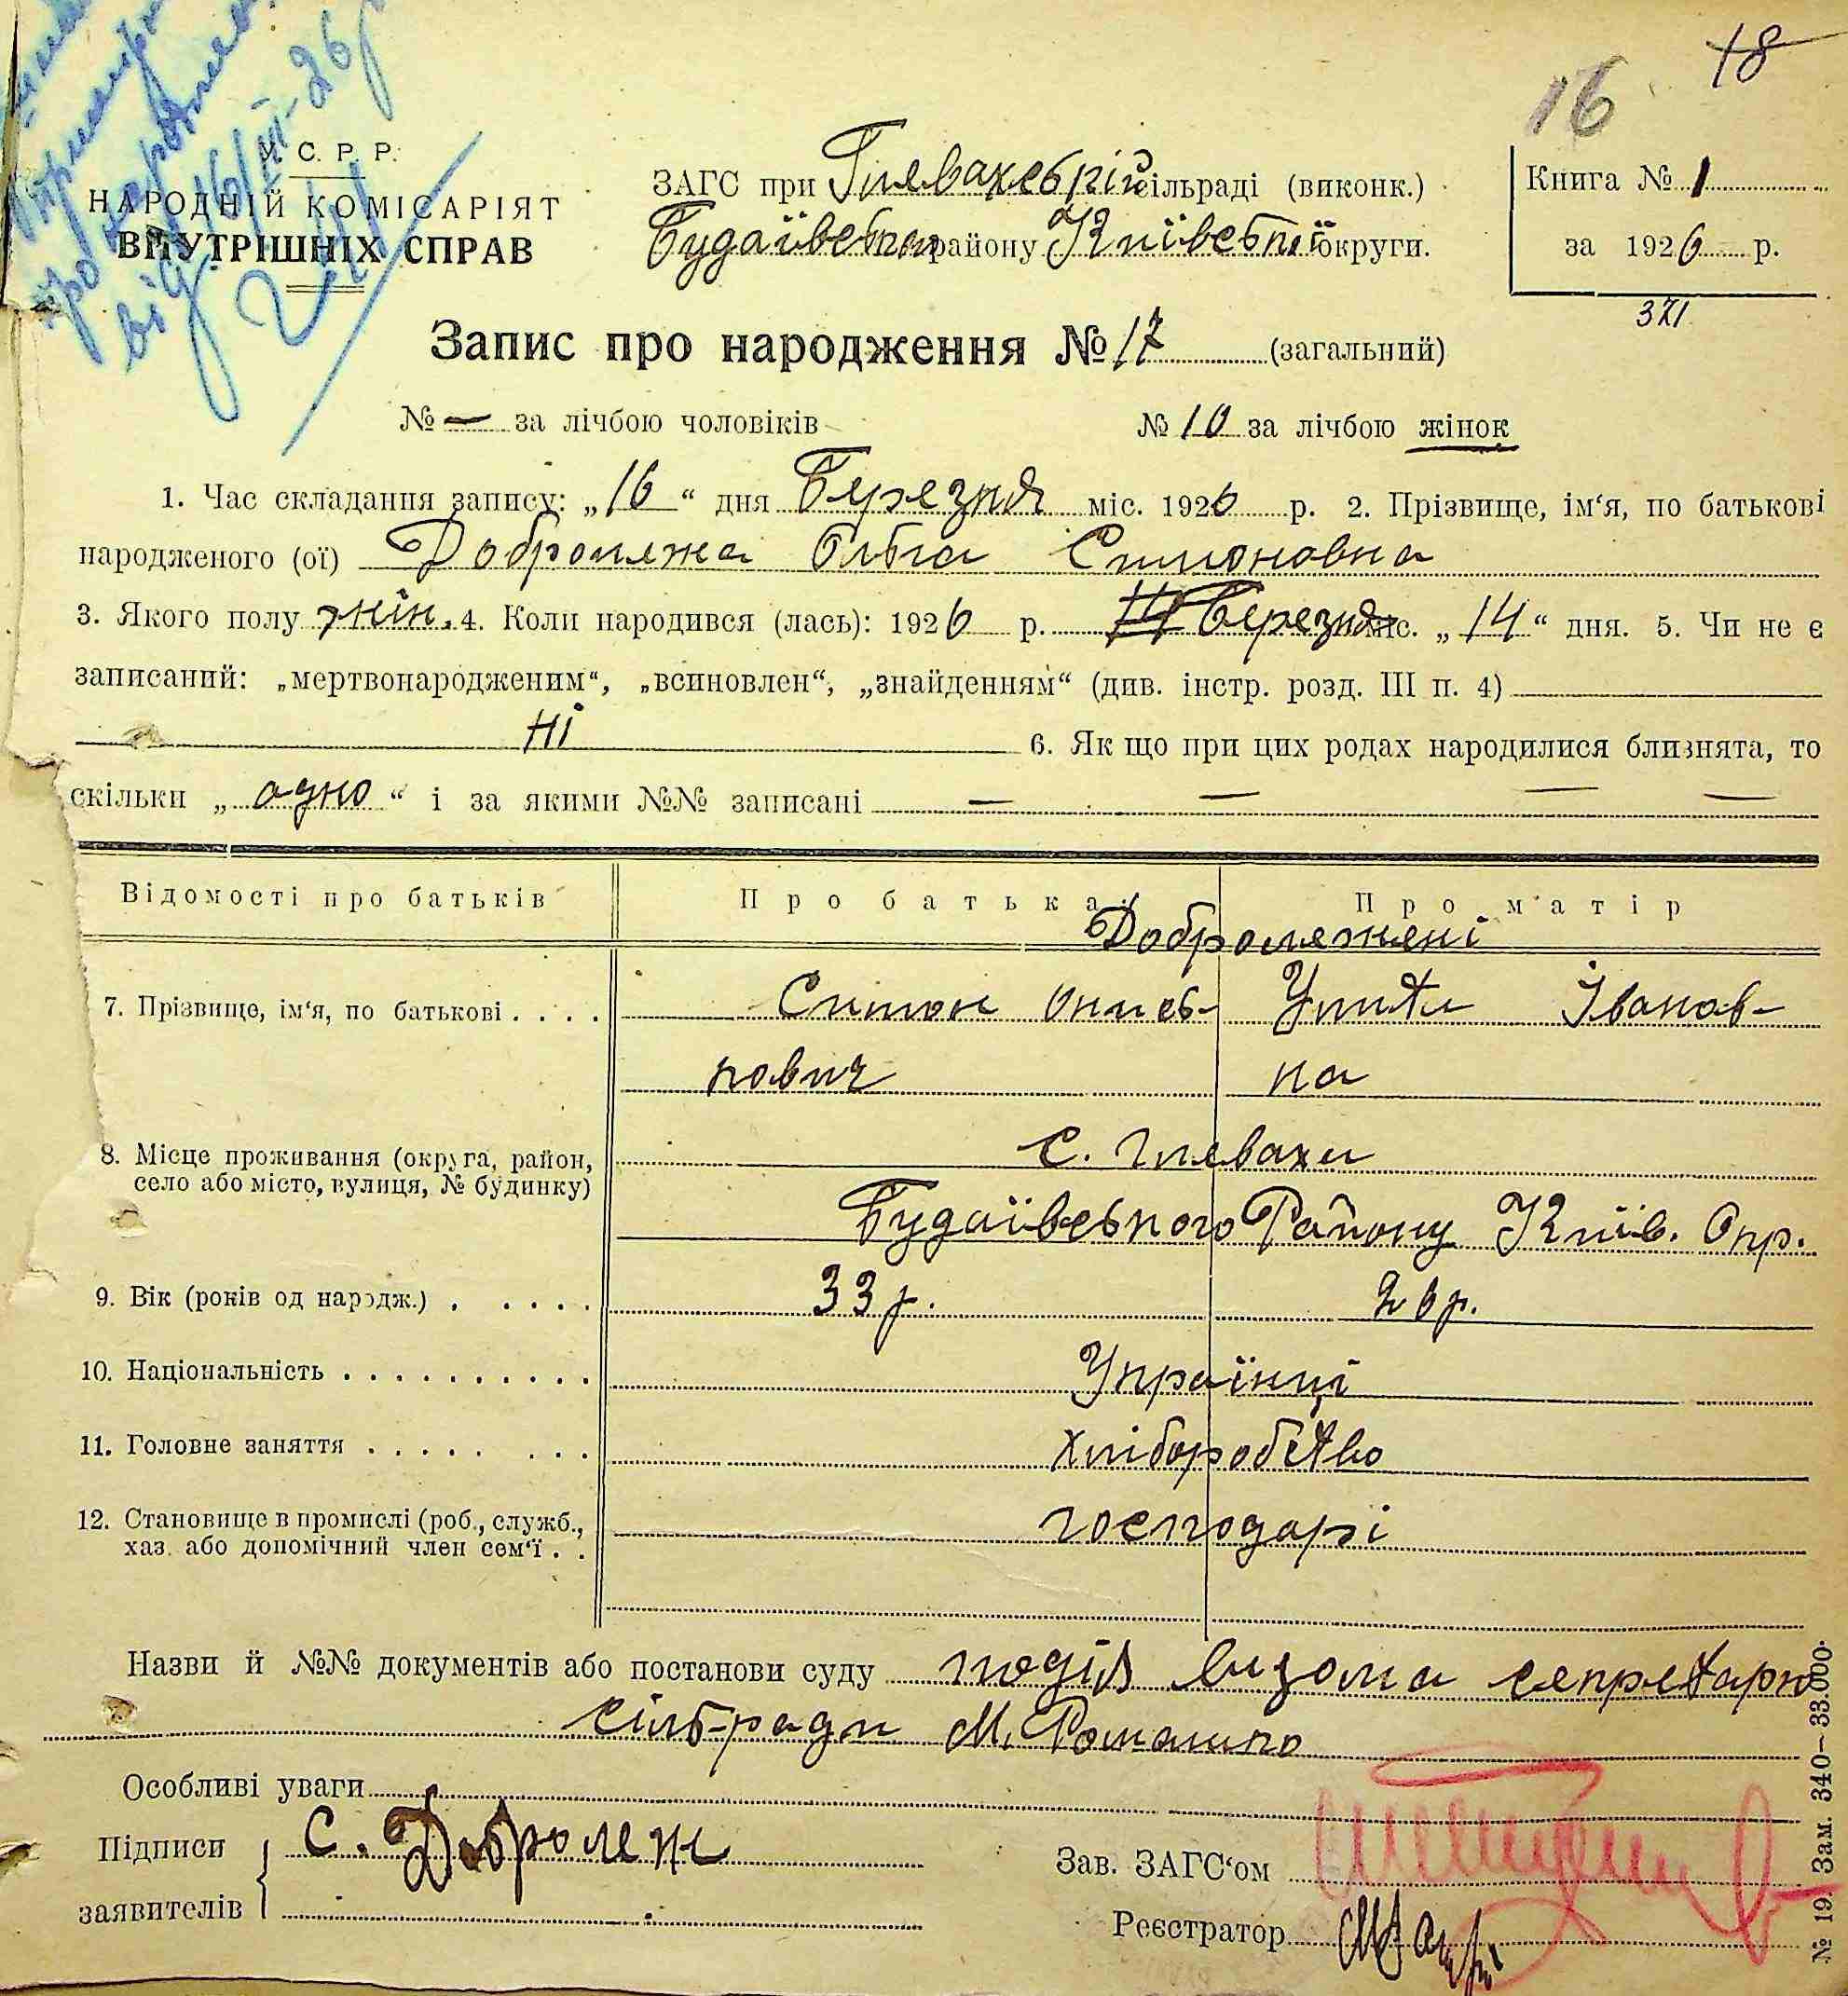 18
16
від 16/III-26р
У. С. Р. Р.
НАРОДНІЙ КОМІСАРІЯТ
ВНУТРІШНІХ СПРАВ
ЗАГС при Глевахській сільраді (виконк.)
Будаївськ району Київської округи.
Книга № 1
за 1926 р.
371
Запис про народження № 17 (загальний)
№ — за лічбою чоловіків
№ 10 за лічбою жінок
1. Час складання запису: „16“ дня Березня міс. 1926 р. 2. Прізвище, ім‘я, по батькові
народженого (ої) Доброляжа Ольга Симоновна
3. Якого полу жін. 4. Коли народився (лась): 1926 р. Березня міс. „14“ дня. 5. Чи не є
записаний: „мертвонародженим“, „всиновлен“, „знайденням“ (див. інстр. розд. III п. 4)
ні
6. Як що при цих родах народилися близнята, то
скільки „одно“ і за якими №№ записані — — — —
Відомості про батьків
Про батька
Про матір
Доброляжені
7. Прізвище, ім‘я, по батькові
Симон Онись-
Улита Іванов-
кович
на
8. Місце проживання (округа, район,
село або місто, вулиця, № будинку)
с. Глеваха
Будаївського Району Київ. Окр.
9. Вік (років од народж.)
33 р.
26 р.
10. Національність
Українці
11. Головне заняття
хліборобство
12. Становище в промислі (роб., служб.,
хаз. або допомічний член сем‘ї
господарі
Назви й №№ документів або постанови суду подія відома секретарю
сільради М. Романько
Особливі уваги
Підписи
заявителів
С. Доброляж
Зав. ЗАГС‘ом
Реєстратор
№ 19. Зам. 340—33.000.